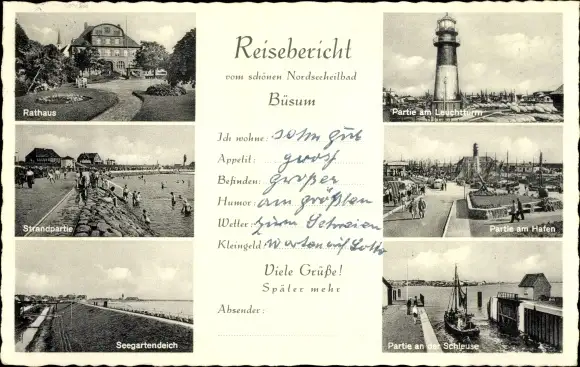 Reisebericht
vom schönen Nordseeheilbad
Büsum
Ich wohne: sehr gut
Appetit: gross
Befinden: großer
Humor: am größten
Wetter: zum Schreien
Kleingeld Warten auf Lotto
Viele Grüße!
Später mehr
Absender:
Rathaus
Strandpartie
Seegartendeich
Partie am Leuchtturm
Partie am Hafen
Partie an der Schleuse